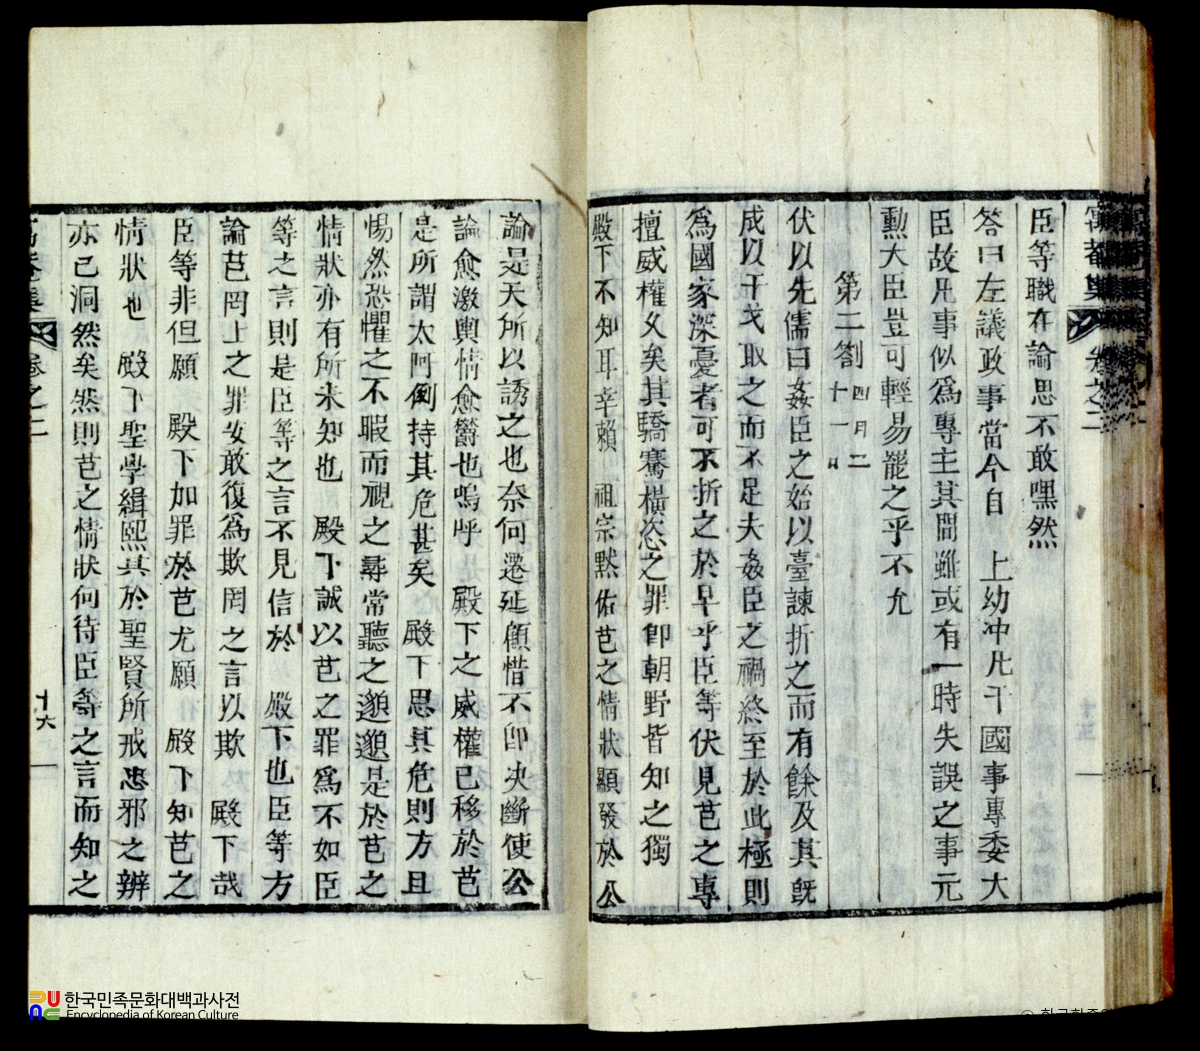 臣等職在論思不敢嘿然
答曰左議政事當今自 上幼冲凡干國事專委大
臣故凡事似爲專主其間雖或有一時失誤之事元
勳大臣豈可輕易罷之乎不允
第二劄 四月二十一日
伏以先儒曰姦臣之始以臺諫折之而有餘及其旣
成以干戈取之而不足夫姦臣之禍終至於此極則
爲國家深憂者可不折之於早乎臣等伏見芑之專
擅威權久矣其驕騫橫恣之罪卽朝野皆知之獨
殿下不知耳幸賴 祖宗默佑芑之情狀顯發於公
論是天所以誘之也奈何遷延顧惜不卽決斷使公
論愈激輿情愈鬱也嗚呼 殿下之威權已移於芑
是所謂太阿倒持其危甚矣 殿下思其危則方且
惕然恐懼之不暇而視之尋常聽之邈邈是於芑之
情狀亦有所未知也 殿下誠以芑之罪爲不如臣
等之言則是臣等之言不見信於 殿下也臣等方
論芑罔上之罪安敢復爲欺罔之言以欺 殿下哉
臣等非但願 殿下加罪於芑尤願 殿下知芑之
情狀也 殿下聖學緝熙其於聖賢所戒忠邪之辨
亦已洞然矣然則芑之情狀何待臣等之言而知之
卷之二
十六
한국민족문화대백과사전
Encyclopedia of Korean Culture